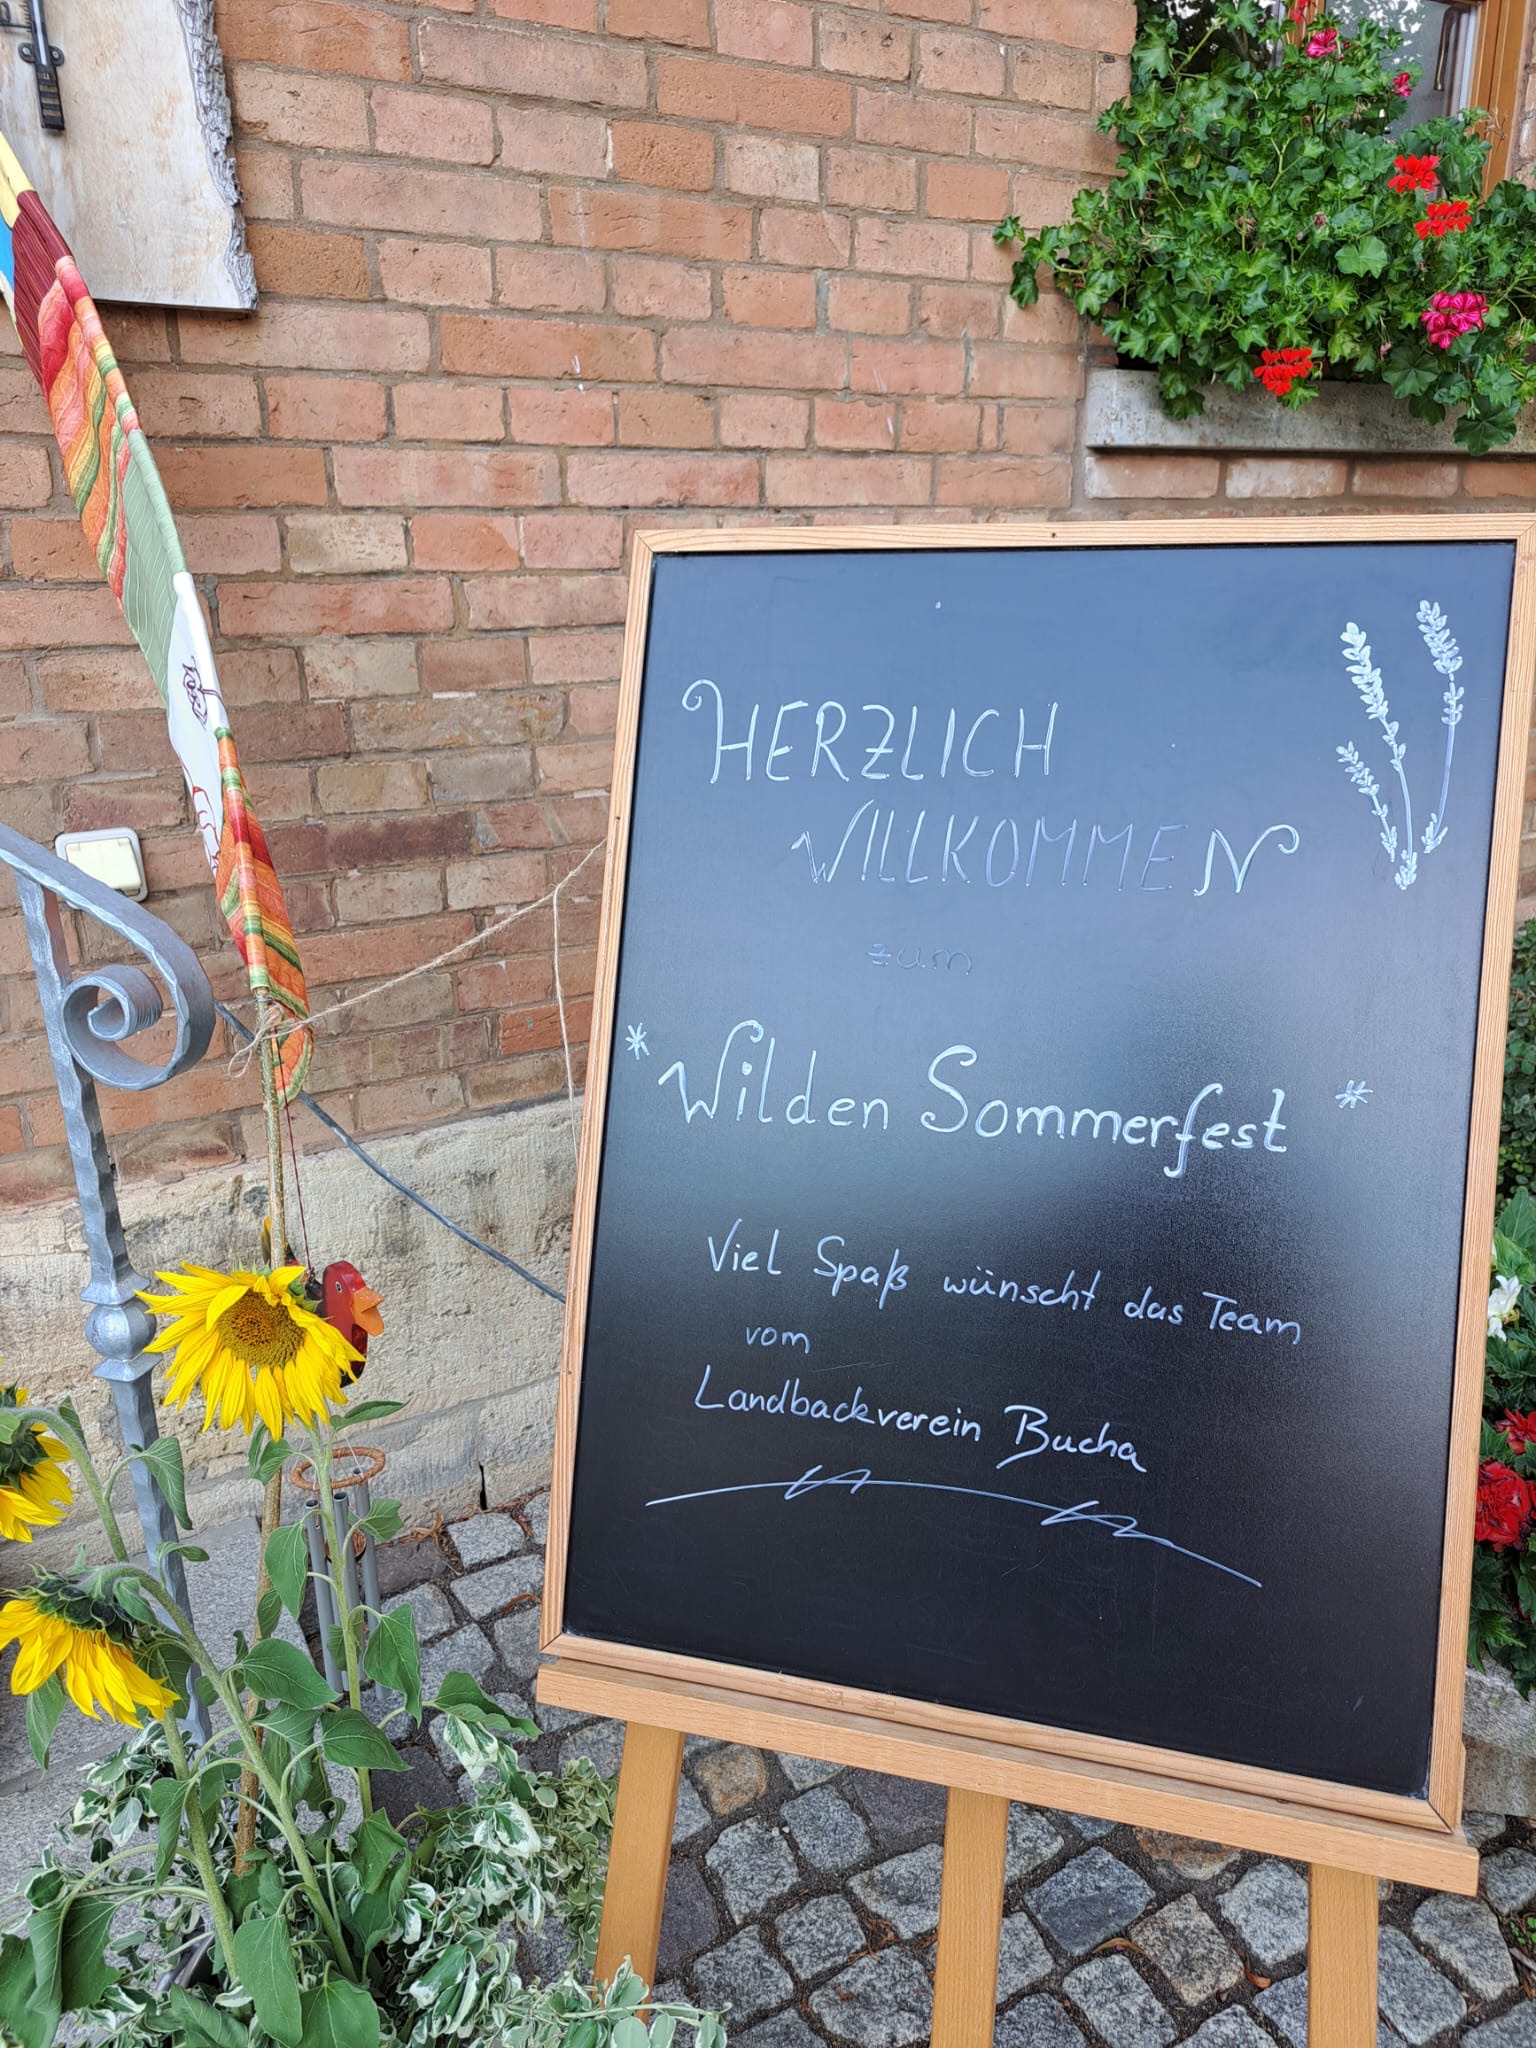 HERZLICH
WILLKOMMEN
zum
* Wilden Sommerfest *
Viel Spaß wünscht das Team
vom
Landbackverein Bucha